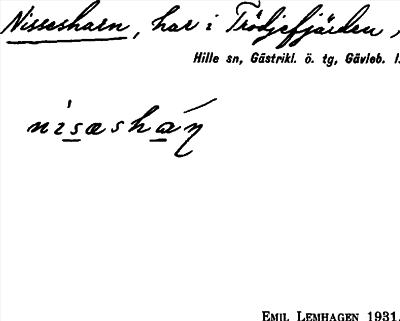 Nissesharn, har i Trödjefjärden,
Hille sn, Gästrikl. ö. tg, Gävleb. l.
EMIL LEMHAGEN 1931.